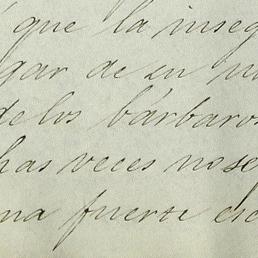 que la inseg
gar de un
de los bárbaros
has veces no se
na fuerte esc